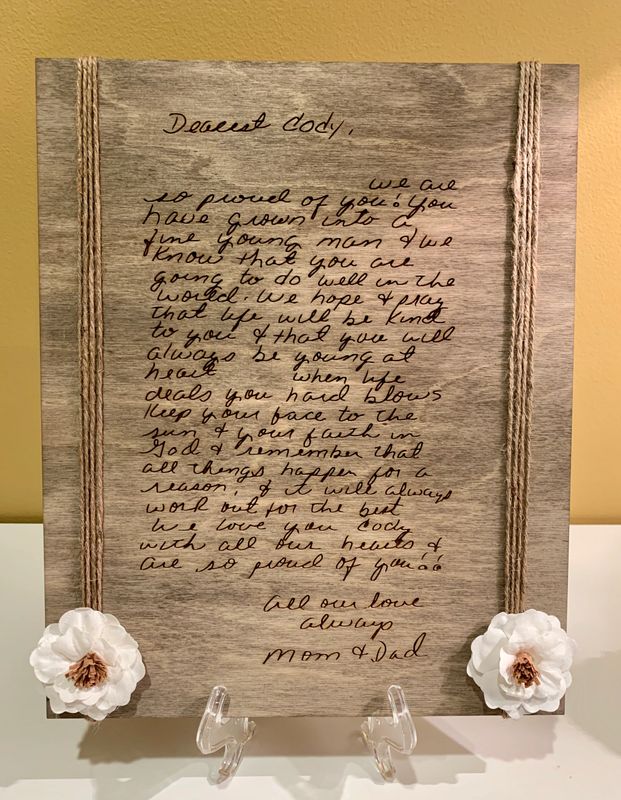 Dearest Cody,
we are
so proud of you! You
have grown into a
fine young man & we
know that you are
going to do well in the
world. We hope & pray
that life will be kind
to you & that you will
always be young at
heart when life
deals you hard blows
keep your face to the
sun & your faith in
God & remember that
all things happen for a
reason, & it will always
work out for the best
We love you Cody
with all our hearts &
are so proud of you!!
All our love
always
Mom & Dad